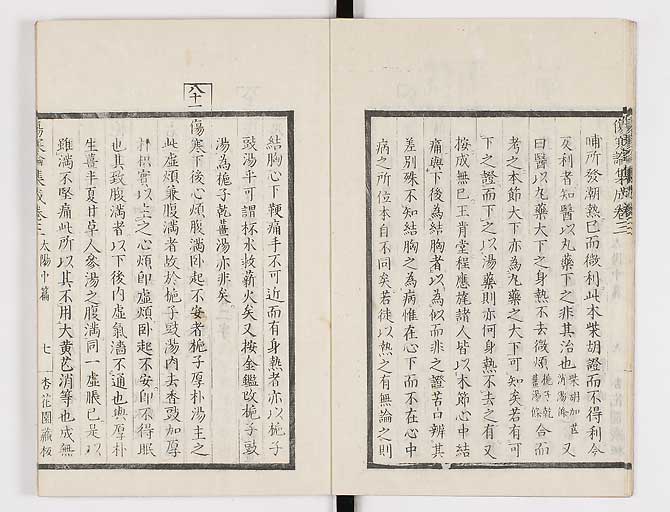 晡所發潮熱已而微利此本柴胡證而不得利今
反利者知醫以丸藥下之非其治也柴胡加芒消湯條又
曰醫以丸藥大下之身熱不去微煩梔子乾薑湯條合而
考之本節大下亦為丸藥之大下可知矣若有可
下之證而下之以湯藥則亦何身熱不去之有又
按成無已王肯堂程應旄諸人皆以本節心中結
痛與下後為結胸者以為似而非之證苦口辨其
差別殊不知結胸之為病惟在心下而不在心中
病之所位本自不同矣若徒以熱之有無論之則
傷寒論集成卷三
結胸心下鞕痛手不可近而有身熱者亦以梔子
豉湯乎可謂杯水救薪火矣又按金鑑改梔子豉
湯為梔子乾薑湯亦非矣
八十一
傷寒下後心煩腹滿臥起不安者梔子厚朴湯主之
此虛煩兼腹滿者故於梔子豉湯內去香豉加厚
朴枳實以主之心煩即虛煩臥起不安即不得眠
也其致腹滿者以下後內虛氣濇不通也與厚朴
生薑半夏甘草人參湯之腹滿同一虛脹已是以
雖滿不堅痛此所以其不用大黃芒消等也成無
傷寒論集成卷三 太陽中篇 七 杏花園藏板